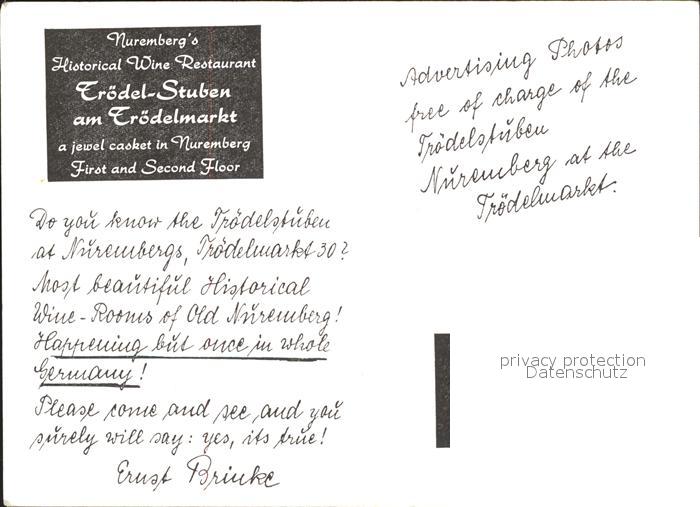 Nuremberg's
Historical Wine Restaurant
Trödel-Stuben
am Trödelmarkt
a jewel casket in Nuremberg
First and Second Floor
Advertising Photos
free of charge of the
Trödelstuben
Nuremberg at the
Trödelmarkt.
Do you know the Trödelstuben
at Nurembergs, Trödelmarkt 30?
Most beautiful Historical
Wine-Rooms of Old Nuremberg!
Happening but once in whole
Germany!
Please come and see, and you
surely will say: yes, its true!
Ernst Brinke
privacy protection
Datenschutz